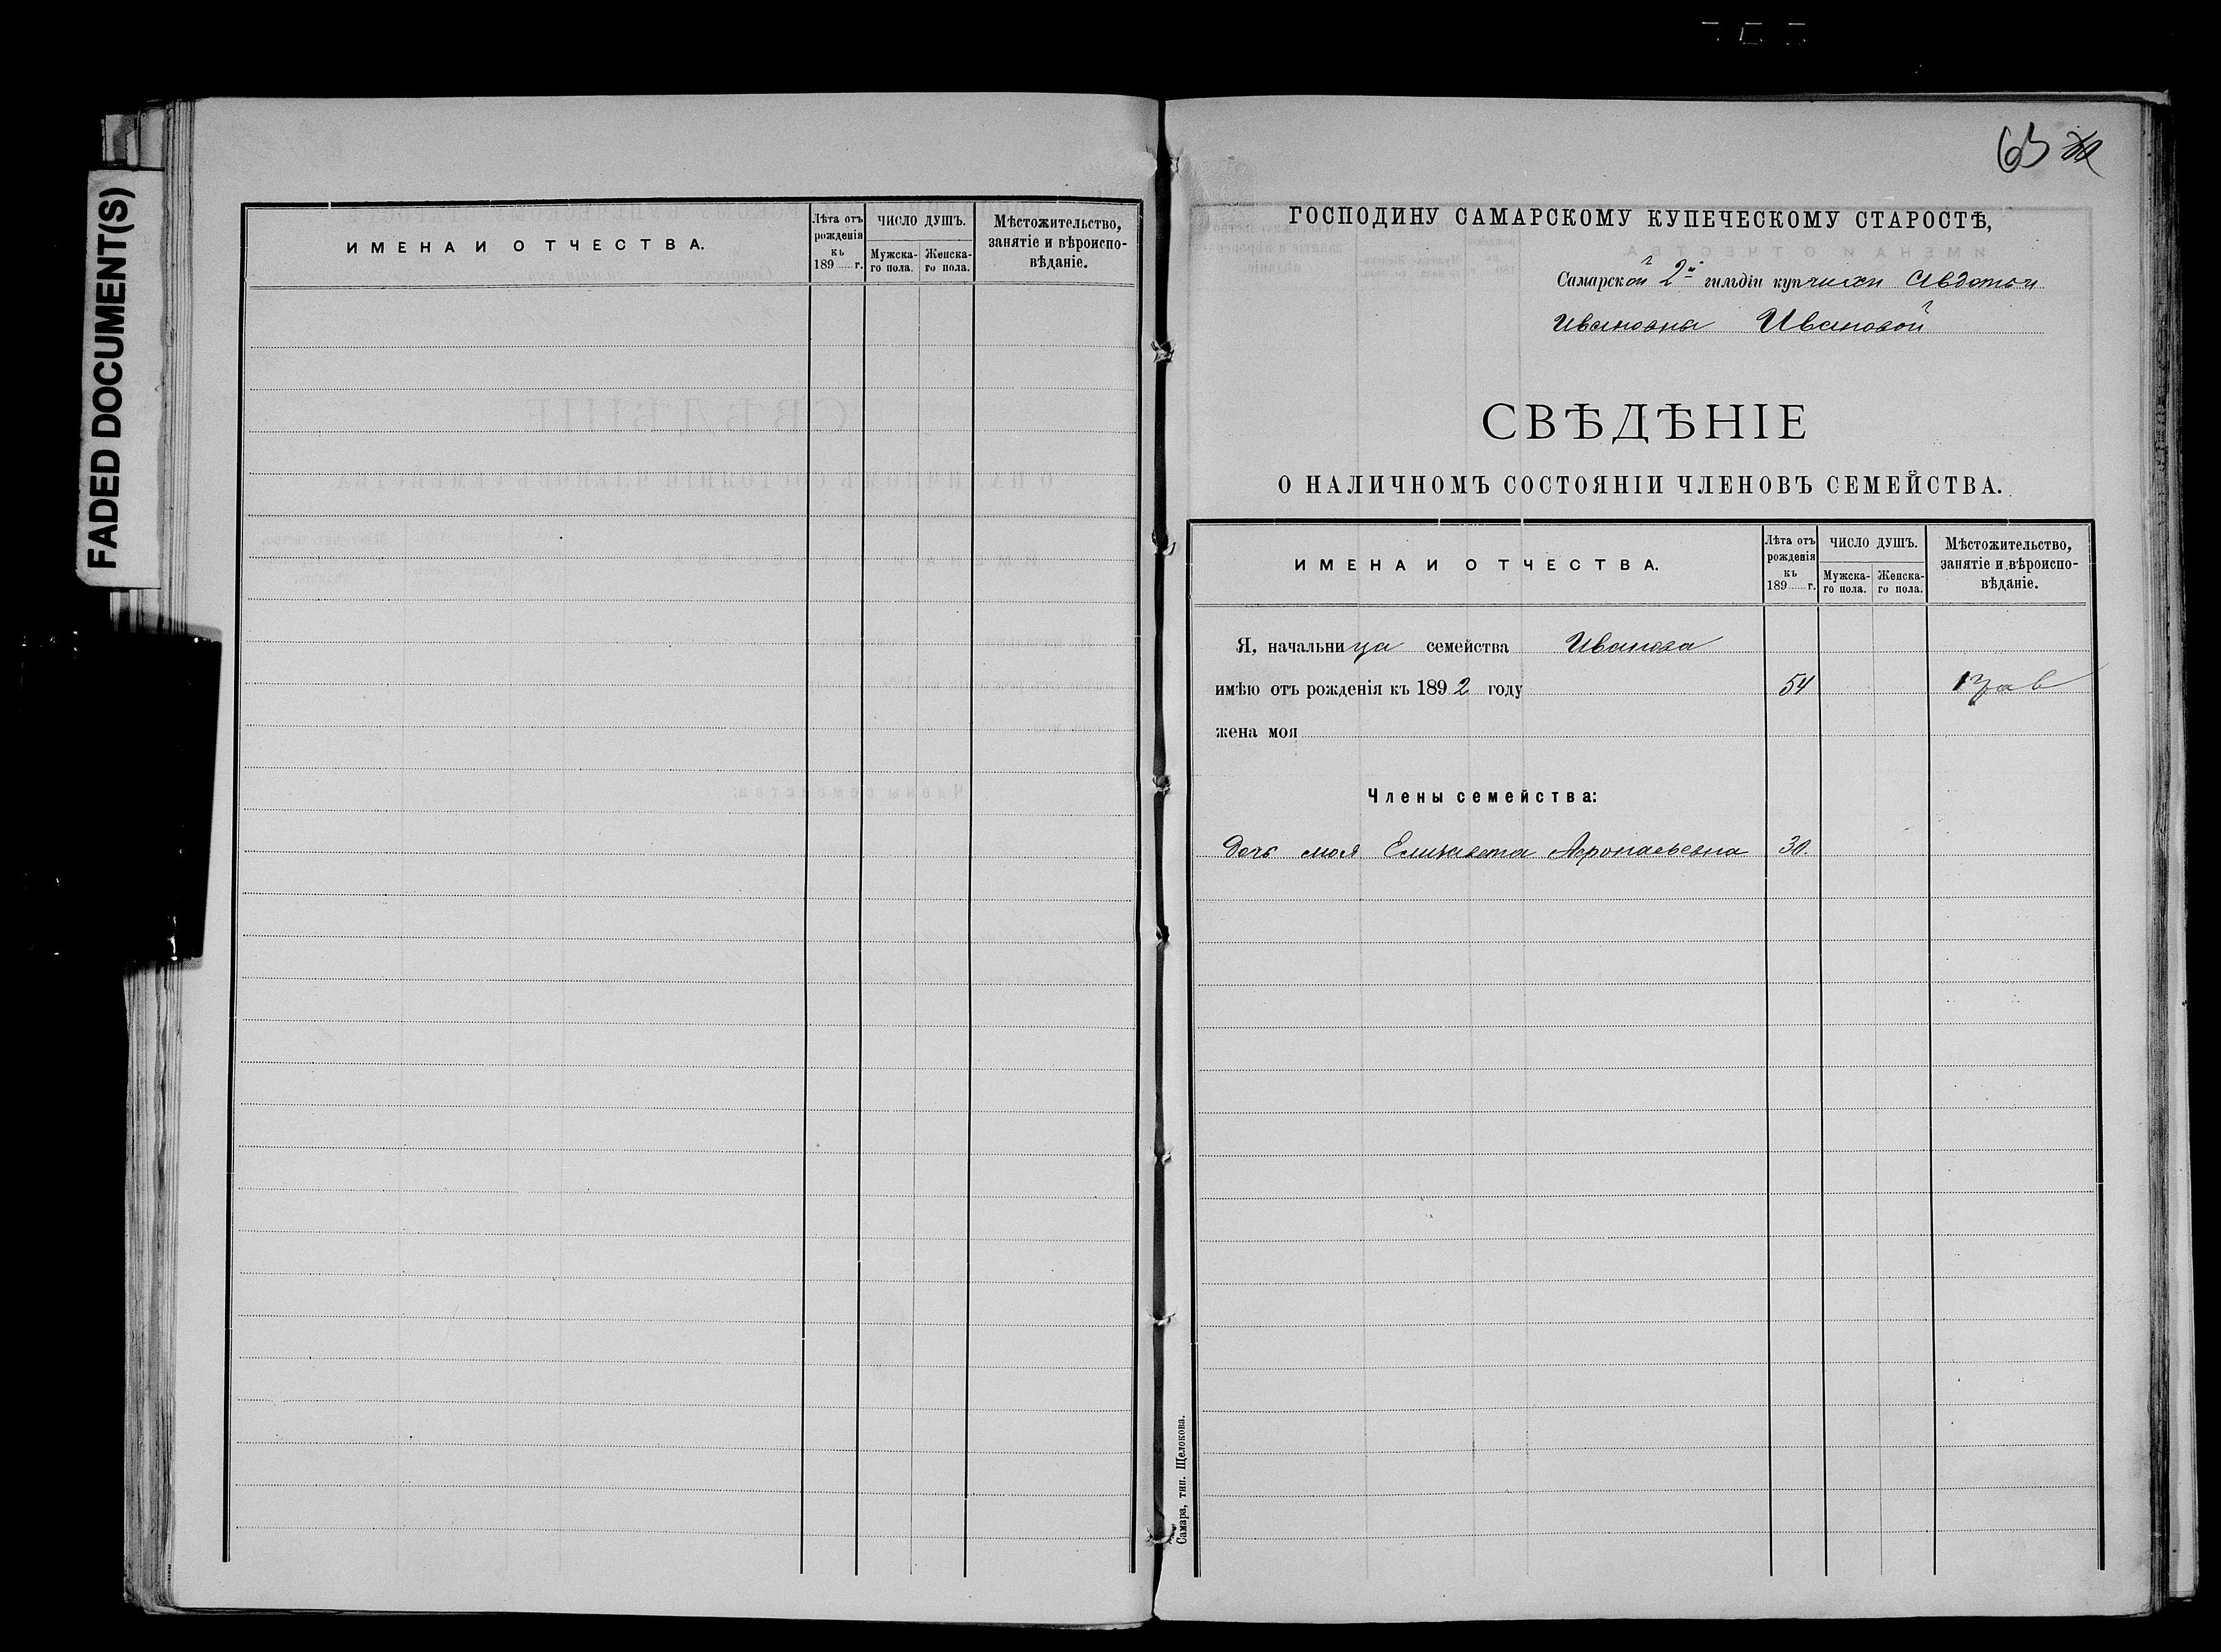 FADED DOCUMENT(S)
ИМЕНА И ОТЧЕСТВА.
Лѣта отъ рожденія къ 189 г.
ЧИСЛО ДУШЪ.
Мужска-го пола.
Женска-го пола.
Мѣстожительство, занятіе и вѣроиспо-вѣданіе.
63
ГОСПОДИНУ САМАРСКОМУ КУПЕЧЕСКОМУ СТАРОСТѢ,
Самарской 2й гильдіи купчихи Авдотьи
Ивановна Ивановой
СВѢДѢНІЕ
О НАЛИЧНОМЪ СОСТОЯНІИ ЧЛЕНОВЪ СЕМЕЙСТВА.
ИМЕНА И ОТЧЕСТВА.
Лѣта отъ рожденія къ 189 г.
ЧИСЛО ДУШЪ.
Мужска-го пола.
Женска-го пола.
Мѣстожительство, занятіе и вѣроиспо-вѣданіе.
Я, начальница семейства Иванова
имѣю отъ рожденія къ 1892 году 54
жена моя
Члены семейства:
дочь моя Елизавета 30.
Самара, тип. Щелокова.